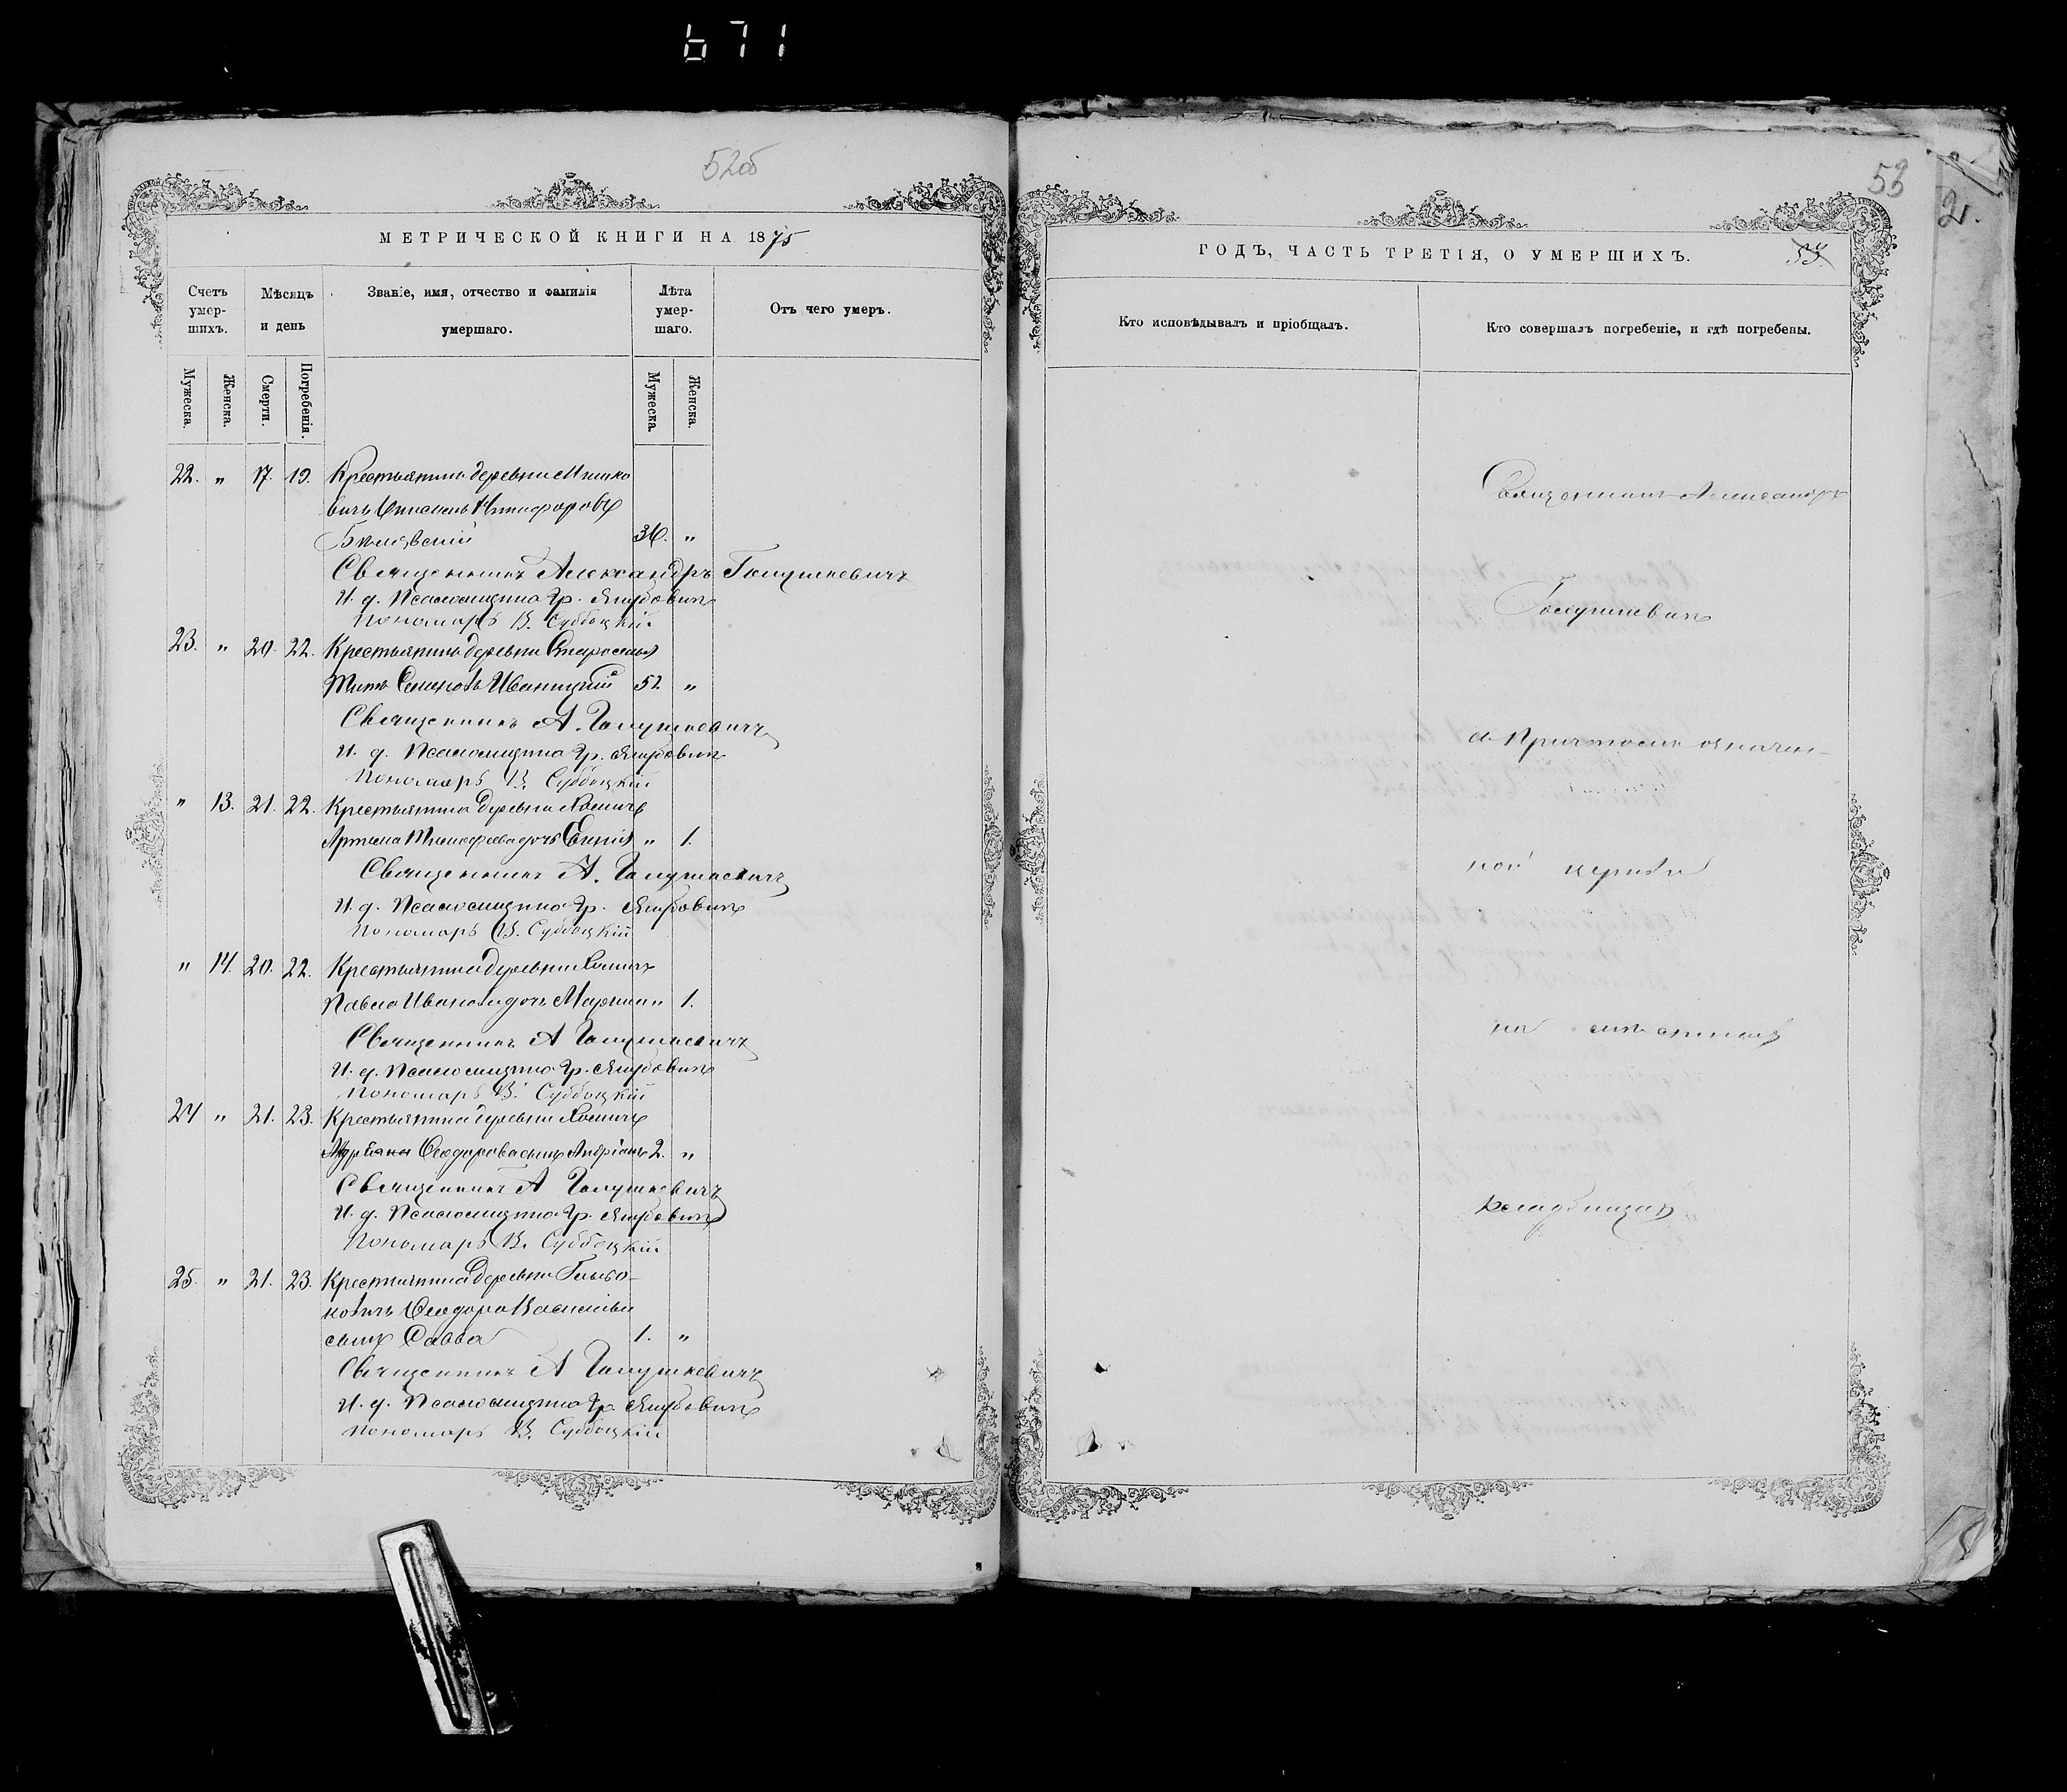 671
52об
МЕТРИЧЕСКОЙ КНИГИ НА 1875
Счетъ умер-шихъ.
Мѣсяцъ и день
Званіе, имя, отчество и фамилія умершаго.
Лѣта умер-шаго.
Отъ чего умеръ.
Мужеска.
Женска.
Смерти.
Погребенія.
Мужеска.
Женска.
22. " 17. 19. Крестьянинъ деревни Мишко
вичъ Никифоровъ
36. "
Священникъ Александръ Галушкевичъ
И. д. Псаломщика Гр. Якубовичъ
Пономарь В. Субботскій
23. " 20. 22. Крестьянинъ деревни Староселья
Титъ Семеновъ Иваницкій 52 "
Священникъ А. Галушкевичъ
И. д. Псаломщика Гр. Якубовичъ
Пономарь В. Субботскій
" 13. 21. 22. Крестьянина деревни Хомичъ
Артема Тимофеева дочь " 1.
Священникъ А. Галушкевичъ
И. д. Псаломщика Гр. Якубовичъ
Пономарь В. Субботскій
" 14. 20. 22. Крестьянина деревни Хомичъ
Павла Иванова дочь Марина " 1.
Священникъ А Галушкевичъ
И. д. Псаломщика Гр. Якубовичъ
Пономарь В. Субботскій
24 " 21. 23. Крестьянина деревни Хомичъ
Феодорова сынъ Андріанъ 2. "
Священникъ А Галушкевичъ
И. д. Псаломщика Гр. Якубовичъ
Пономарь В. Субботскій
25. " 21. 23. Крестьянина деревни
Феодора Васильева
сынъ Савва 1. "
Священникъ А Галушкевичъ
И. д. Псаломщика Гр. Якубовичъ
Пономарь В. Субботскій
53
2.
ГОДЪ, ЧАСТЬ ТРЕТІЯ, О УМЕРШИХЪ.
Кто исповѣдывалъ и пріобщалъ.
Кто совершалъ погребеніе, и гдѣ погребены.
Священникъ Александръ
Галушкевичъ
съ Причтомъ означен-
ной церкви
на мѣстныхъ
кладбищахъ